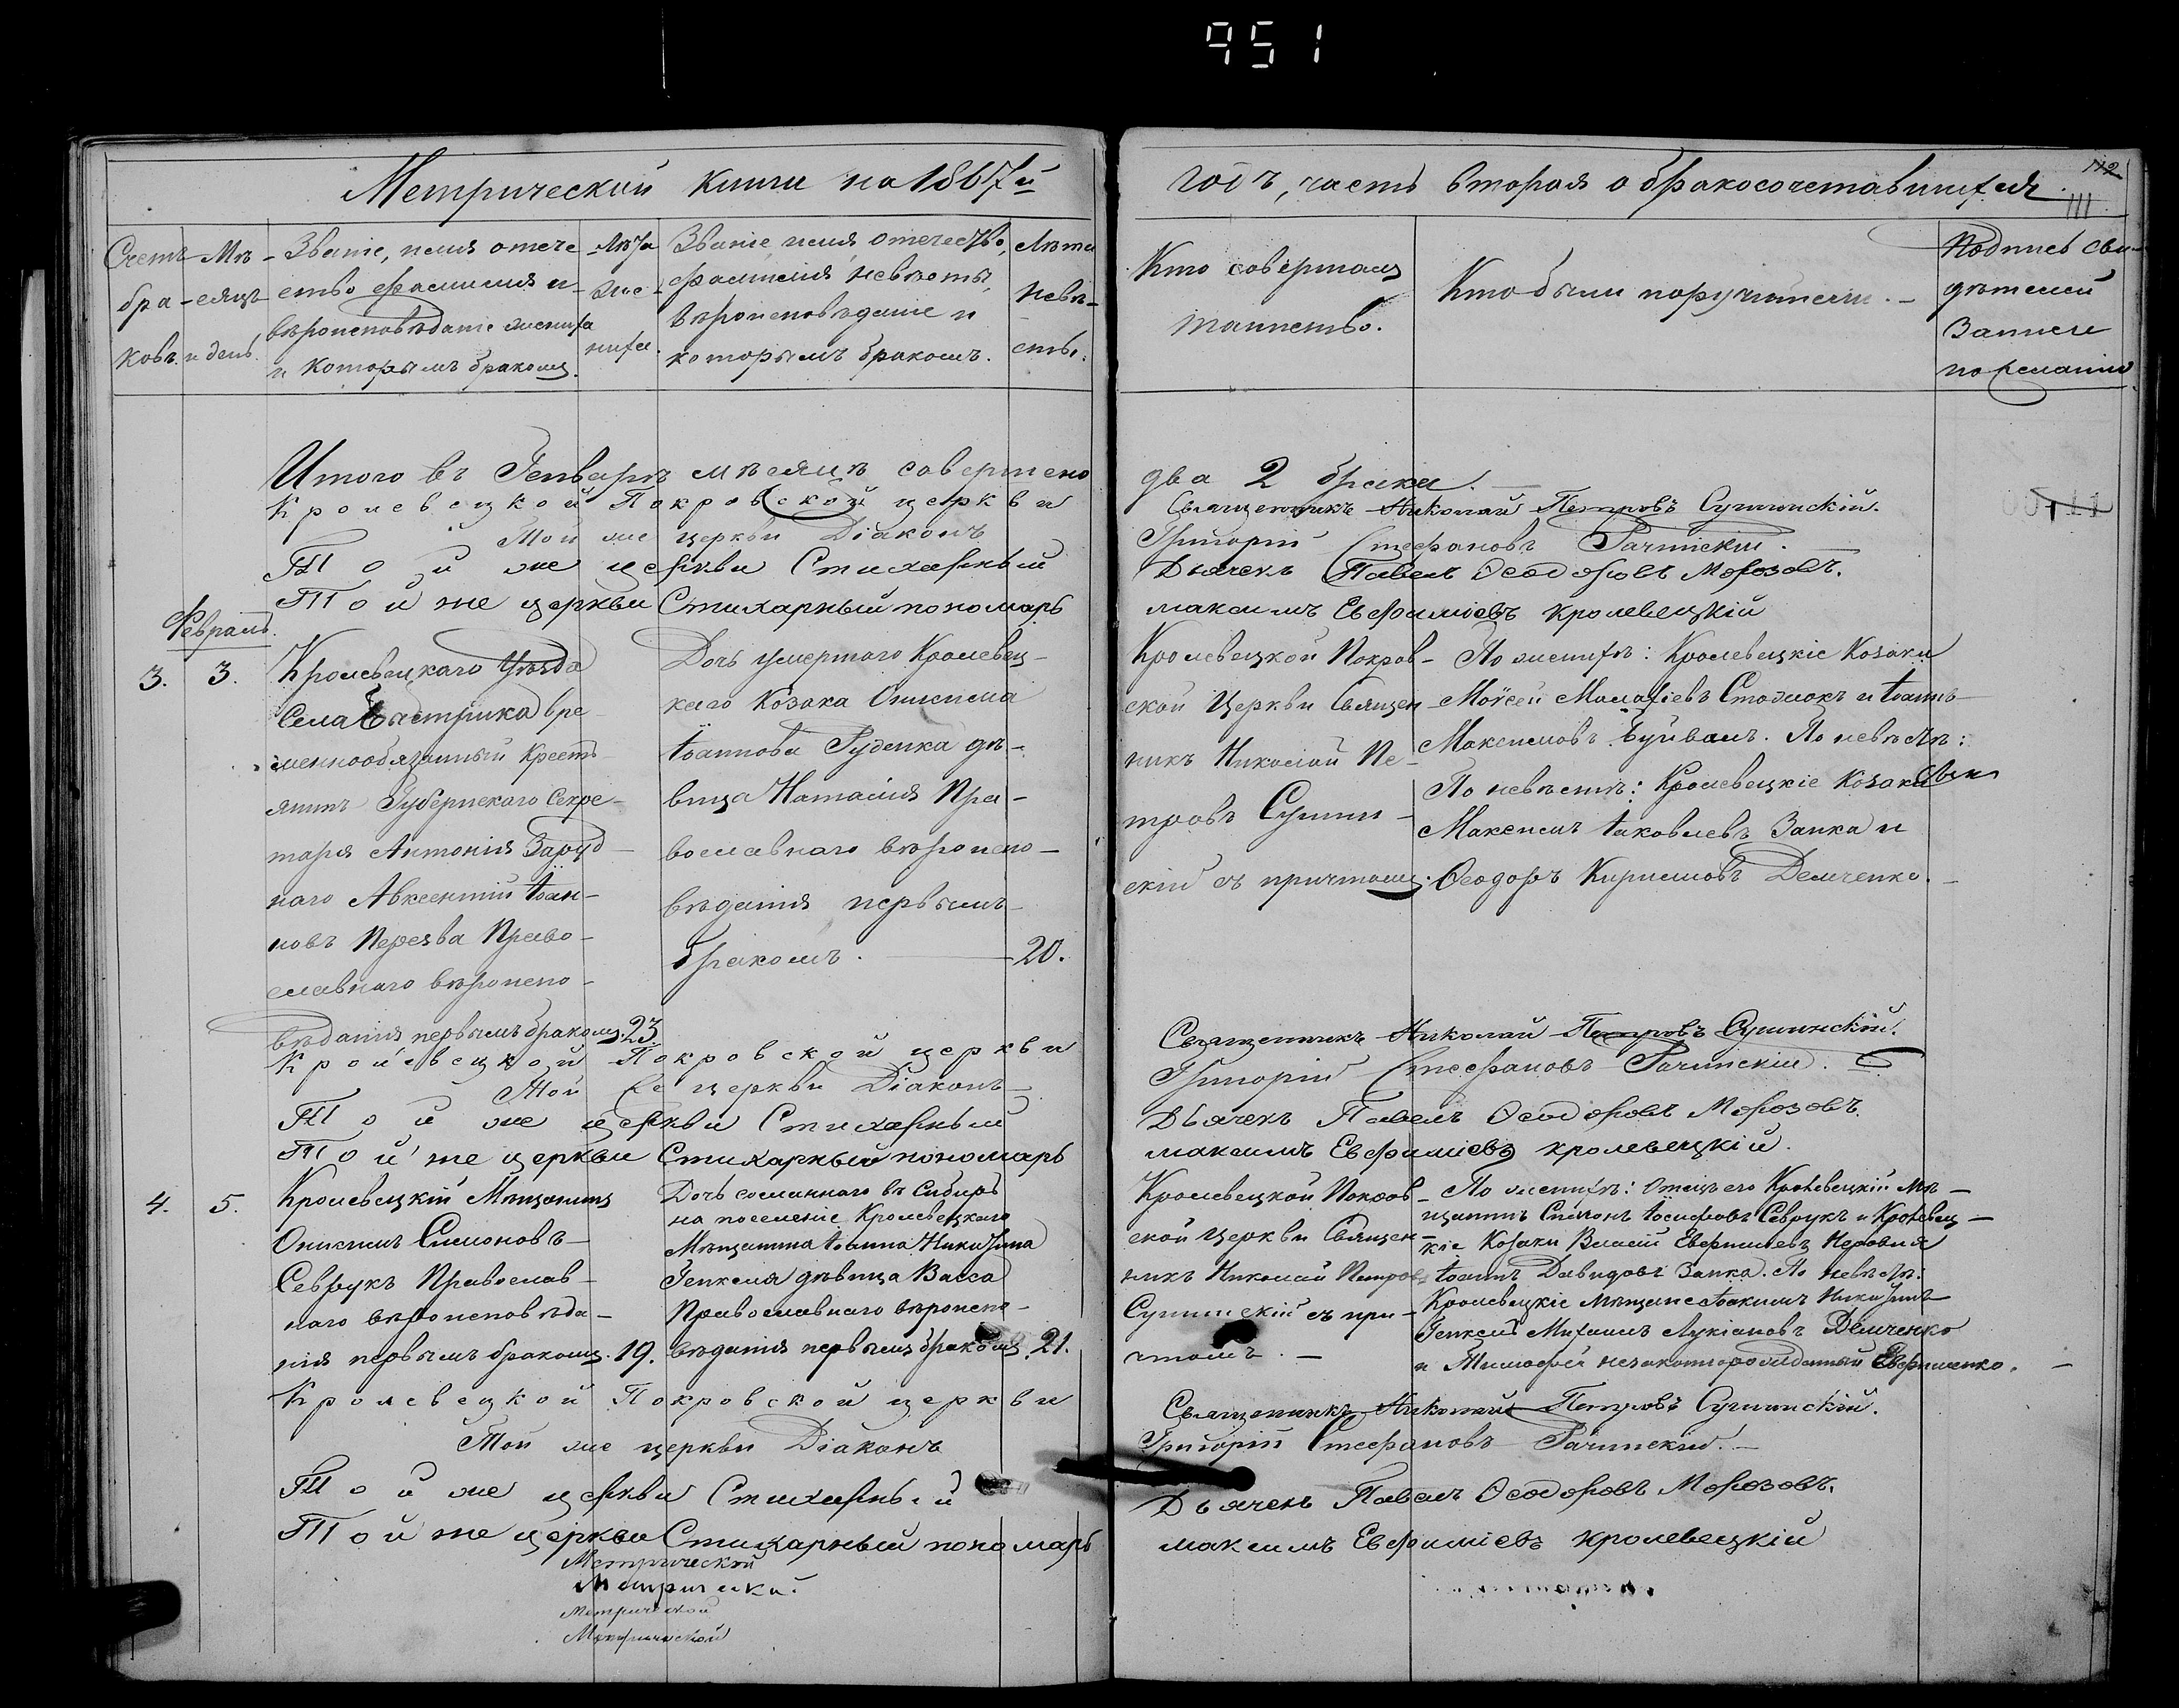 951
Метрической книги на 1867й
годъ, часть вторая о бракосочетавшихся.
112
111
Счетъ бра-ковъ.
Мѣ-сяцъ и день.
Званіе, имя, отече-
ство фамилия и
вѣроисповѣданіе жениха
и которымъ бракомъ.
Лѣта
же-
ниха.
Званіе, имя, отечество,
фамилія невѣсты,
вѣроисповѣданіе и
которымъ бракомъ.
Лѣта
невѣ-
сты.
Кто совершалъ
таинство.
Кто были поручители.
Подпись сви-
дѣтелей
записи
по желанію
Итого въ Генварѣ мѣсяцѣ совершено два 2 брака.
Кролевецкой Покровской церкви Священникъ Николай Петровъ Сушинскій.
Той же церкви Діаконъ Григорій Стефановъ Рачинскій.
Той же церкви Стихарный Дьячекъ Павелъ Ѳеодоровъ Морозовъ.
Той же церкви Стихарный пономарь максимъ Евфиміевъ кролевецкій
Февраль.
3.
3.
Кролевецкаго Уѣзда
Села Быстрика вре-
меннообязанный Кресть-
янинъ Губернскаго Секре-
таря Антонія Заруд-
наго Авксентій Іоан-
новъ Перезва Право-
славнаго вѣроиспо-
вѣданія первымъ бракомъ.
23.
Дочь умершаго Кролевец-
каго Козака Онисима
Іоаннова Руденка дѣ-
вица Наталія Пра-
вославнаго вѣроиспо-
вѣданія первымъ
бракомъ.
20.
Кролевецкой Покров-
ской Церкви Священ-
никъ Николай Пе-
тровъ Сушин-
скій съ причтомъ.
По женихѣ: Кролевецкіе Козаки
Моѵсей Малахіевъ и Іоаннъ
Максимовъ Буйвалъ. По невѣстѣ:
По невѣстѣ: Кролевецкіе Козаки
Максимъ Іаковлевъ Заика и
Ѳеодоръ Кирилловъ Демченко.
Кролевецкой Покровской церкви Священникъ Николай Петровъ Сушинскій.
Той же церкви Діаконъ Григорій Стефановъ Рачинскій.
Той же церкви Стихарный Дьячекъ Павелъ Ѳеодоровъ Морозовъ.
Той же церкви Стихарный пономарь максимъ Евфиміевъ кролевецкій.
4.
5.
Кролевецкій Мѣщанинъ
Онисимъ Симоновъ
Севрукъ Православ-
наго вѣроисповѣда-
нія первымъ бракомъ.
19.
Дочь сосланнаго въ Сибирь
на поселеніе Кролевецкаго
Мѣщанина Іоанна
дѣвица Васса
Православнаго вѣроиспо-
вѣданія первымъ бракомъ.
21.
Кролевецкой Покров-
ской Церкви Священ-
никъ Николай Петровъ
Сушинскій съ при-
чтомъ.
По женихѣ: отецъ его Кролевецкій Мѣ-
щанинъ Симонъ Іосифовъ Севрукъ и Кролевец-
кіе Козаки Власій Евфиміевъ и
Іоаннъ Давидовъ Заика. По невѣстѣ:
Кролевецкіе Мѣщане Іоакимъ
Михаилъ Лукіановъ Демченко
и Тимофей незаконнорожденный Евфименко.
Кролевецкой Покровской церкви Священникъ Николай Петровъ Сушинскій.
Той же церкви Діаконъ Григорій Стефановъ Рачинскій.
Той же церкви Стихарный Дьячекъ Павелъ Ѳеодоровъ Морозовъ.
Той же церкви Стихарный пономарь максимъ Евфиміевъ кролевецкій
Метрической
Метрической
Метрической
Метрической